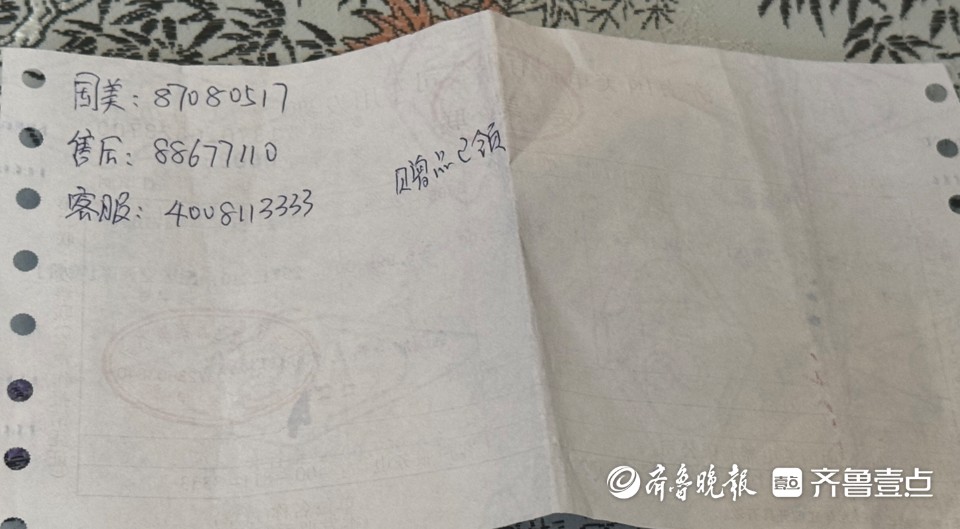 国美：87080517
售后：88677110
客服：4008113333
赠品已领
齐鲁晚报 壹点 齐鲁壹点